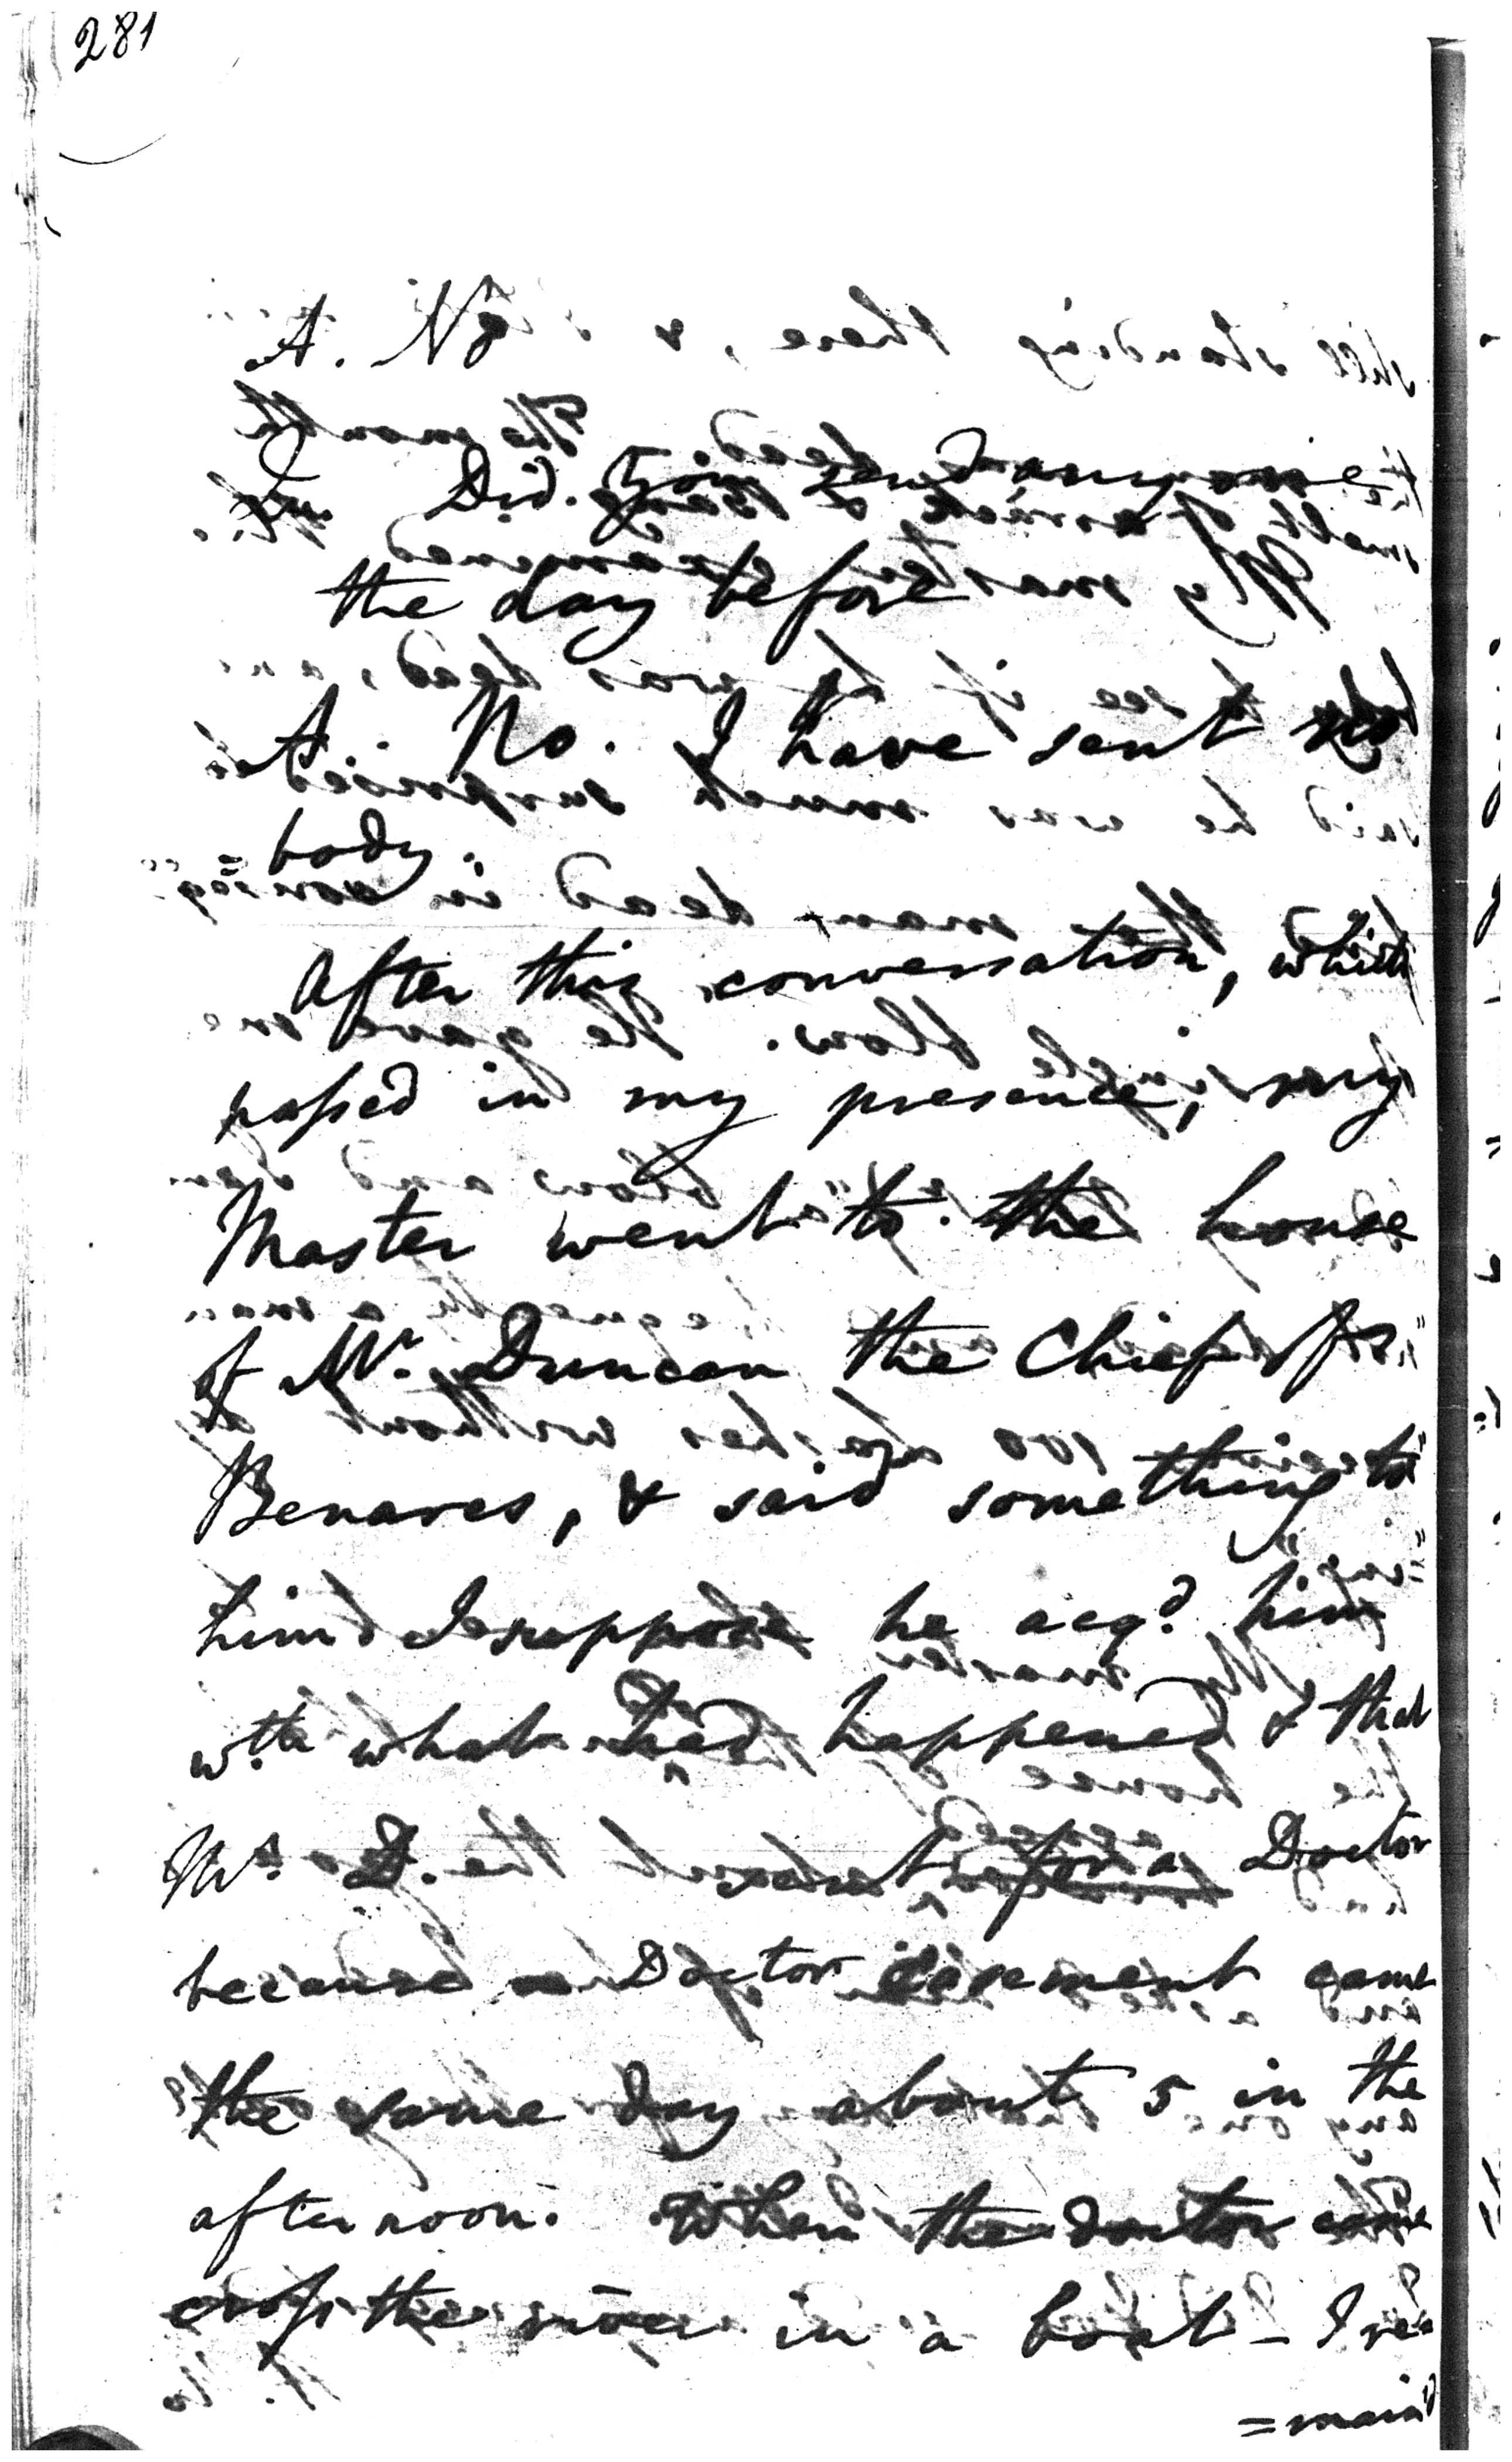 281
A. No
Qu. Did you send any one
the day before
A. No. I have sent no
body.
After this conversation, which
passed in my presence, my
Master went to the house
of Mr. Duncan the Chief of
Benares, & said something to
him I suppose he acqd. him
wth what had happened & that
Mr. D. sent for a Doctor
because Doctor came
the same day about 5 in the
afternoon. When the doctor came
cross the river in a boat - I re
=maind